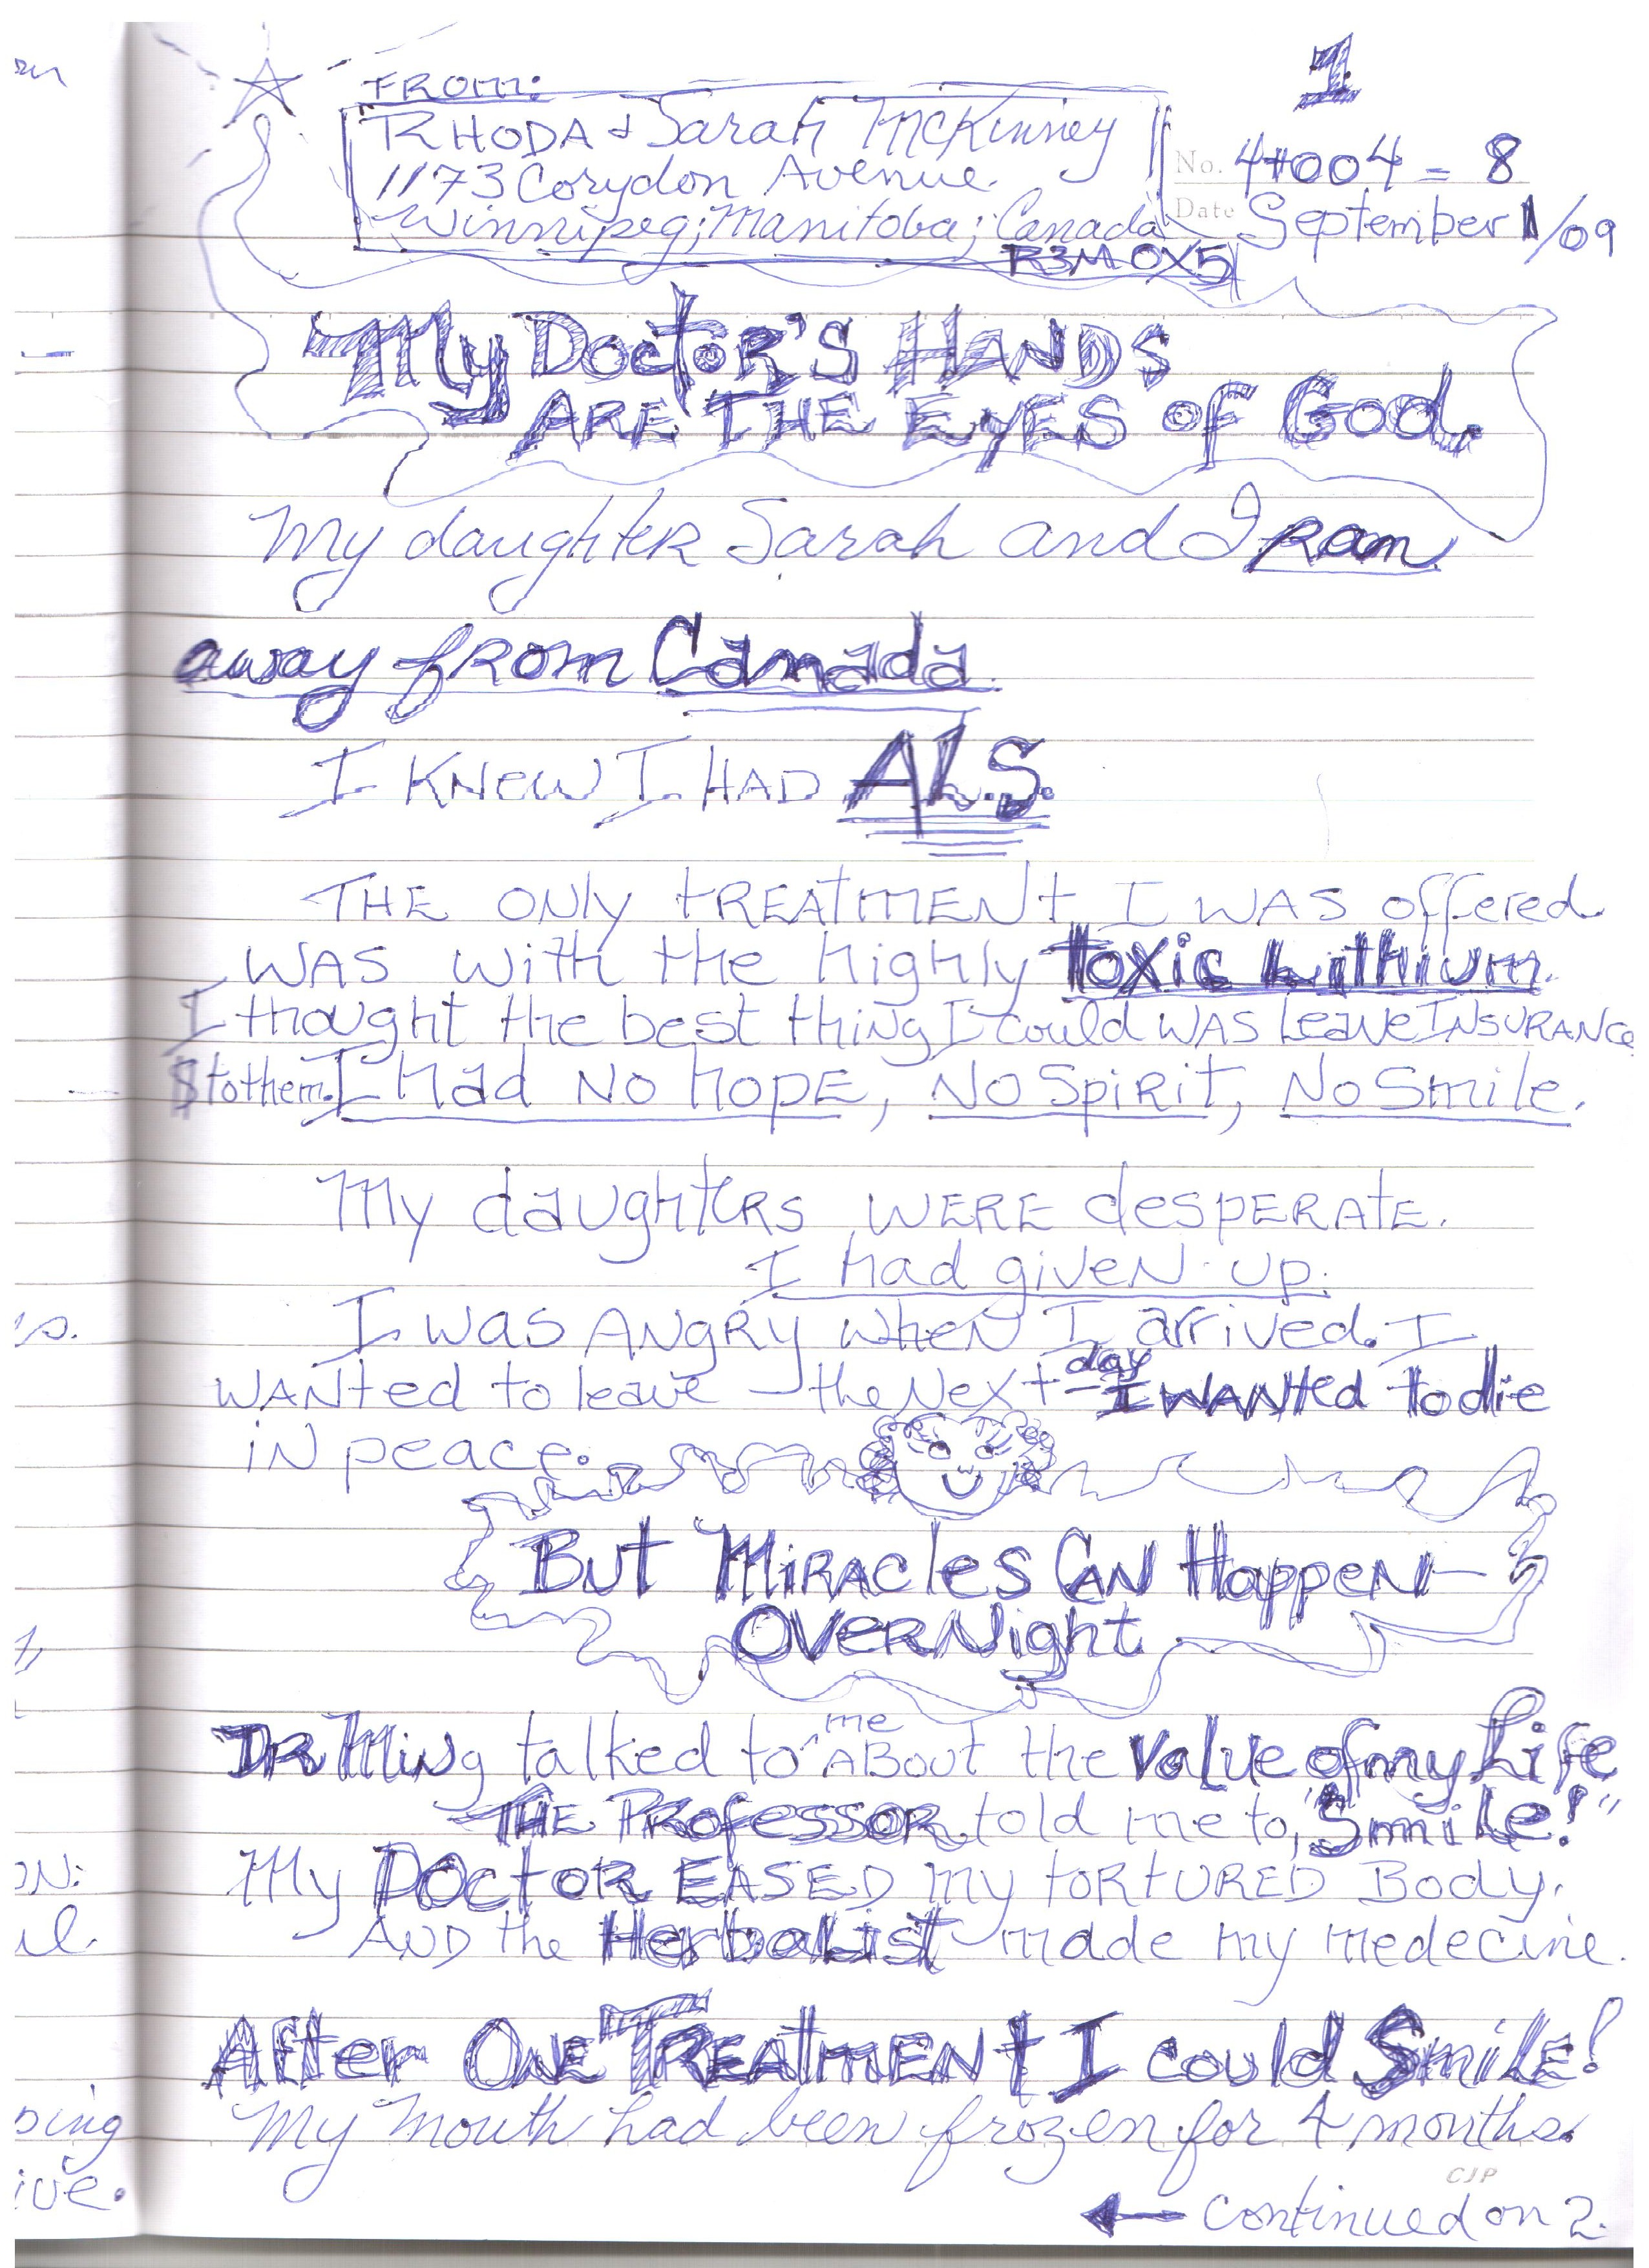 1
FROM:
RHODA & Sarah McKinney
1173 Corydon Avenue.
Winnipeg; Manitoba; Canada
R3M 0X5
No. 4+004 = 8
Date September 1/09
My Doctor's Hands
Are The Eyes of God.
My daughter Sarah and I ran
away from Canada.
I KNEW I HAD A.L.S.
THE ONLY TREATMENT I WAS offered
WAS with the highly toxic Lithium.
I thought the best thing I could WAS Leave INSURANCE
$ to them. I had NO hope, NO Spirit, No Smile.
My daughters WERE desperate.
I had given up.
I was ANGRY when I arrived. I
WANted to leave the Next day - I WANted to die
in peace.
But Miracles CAN Happen -
OVERNight.
DR Ming talked to me ABOUT the Value of my Life
THE Professor told me to, "Smile!"
My Doctor EASED my tortured Body.
AND the Herbalist made my medecine.
After ONE TREATMENT I could Smile!
My mouth had been frozen for 4 months.
CJP
← Continued on 2.
ON:
ping
ive.